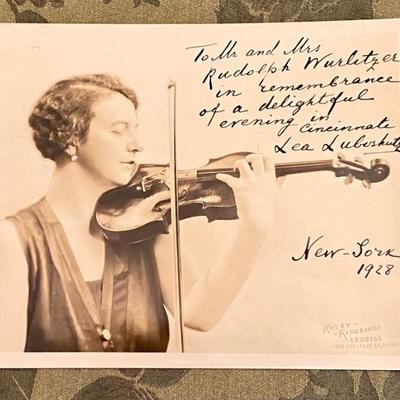 To Mr and Mrs
Rudolph Wurlitzer
in remembrance
of a delightful
evening in
Cincinnati
Lea Luboshutz
New-York
1928
REMBRANDT
STUDIOS